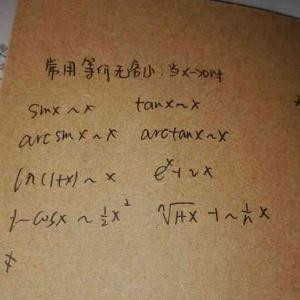 常用等价无穷小:当x→0时
sinx~x tanx~x
arcsinx~x arctanx~x
ln(1+x)~x eˣ-1~x
1-cosx~½x² ⁿ√1+x -1~1/n x